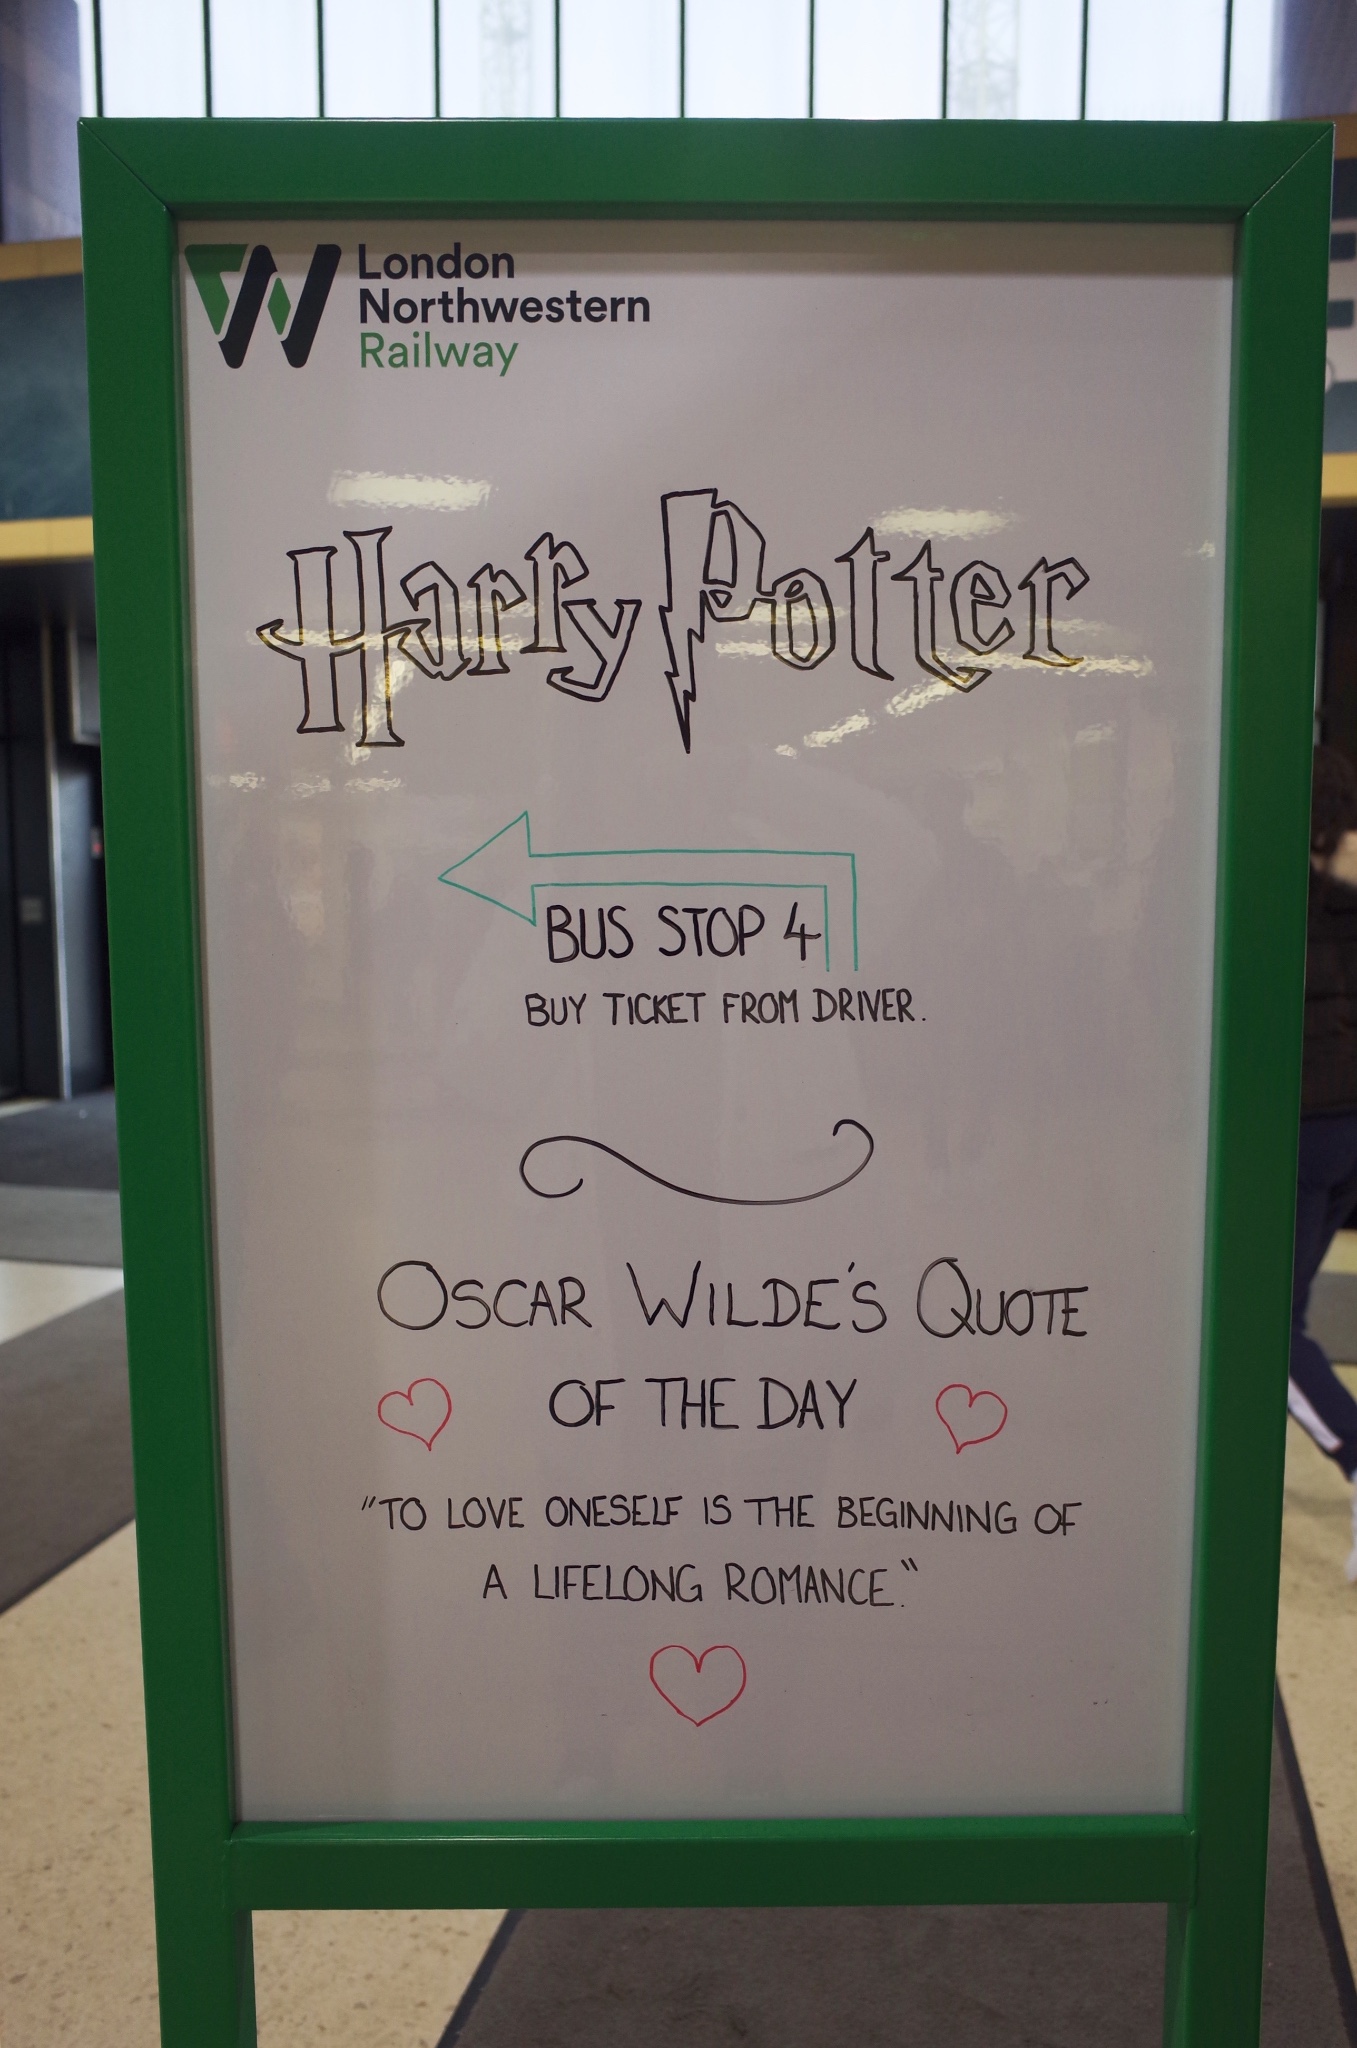 London
Northwestern
Railway
Harry Potter
BUS STOP 4
BUY TICKET FROM DRIVER.
OSCAR WILDE'S QUOTE
OF THE DAY
"TO LOVE ONESELF IS THE BEGINNING OF
A LIFELONG ROMANCE."